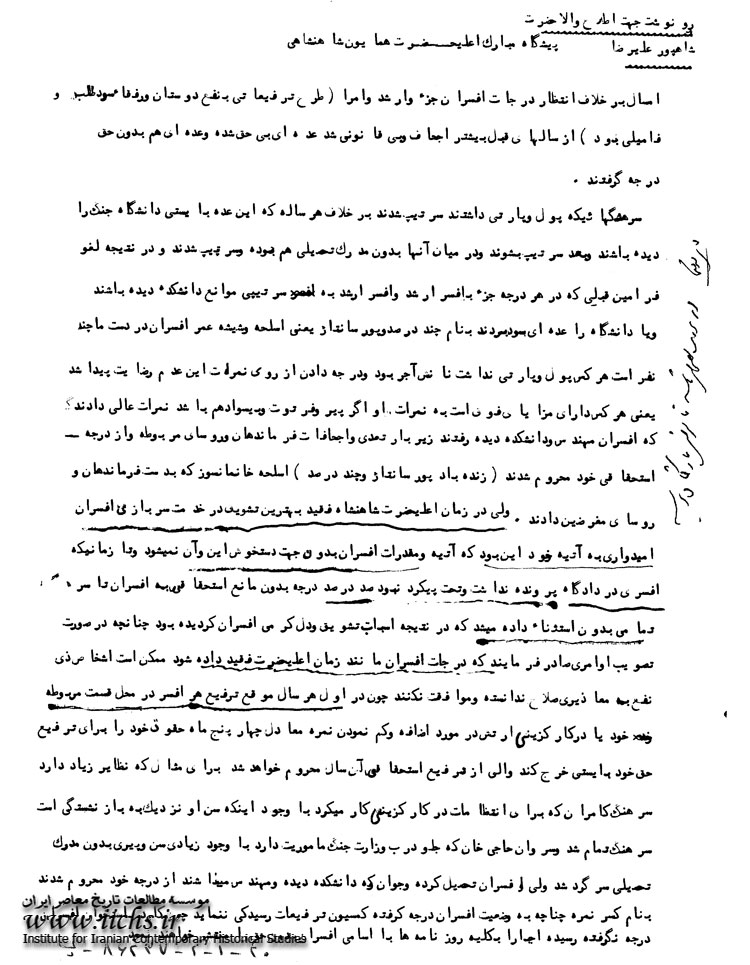 رونوشت جهت اطلاع والاحضرت
شاهپور علیرضا
پیشگاه مبارك اعلیحضرت همایون شاهنشاهی
امسال بر خلاف انتظار درجات افسران جزء وارشد وامرا ( طرح ترفیعاتی بنفع دوستان ورفقا سودطلب و
فامیلی بود ) از سالهای قبل بیشتر اجحاف وبی قانونی شد عده ای بی حق شده وعده ای هم بدون حق
درجه گرفتند .
سرهنگهائیکه پول وپارتی داشتند سرتیپ شدند بر خلاف هر ساله که این عده بایستی دانشگاه جنگ را
دیده باشند وبعد سرتیپ بشوند ودر میان آنها بدون مدرك تحصیلی هم بوده وسرتیپ شدند و در نتیجه لغو
فرامین قبلی که در هر درجه جزء بافسر ارشد وافسر ارشد به سرتیپی موانع دانشکده دیده باشند
ویا دانشگاه را عده ای سود بردند بنام چند درصد وپورسانتاژ یعنی اسلحه وشیشه عمر افسران در دست ماچند
نفر است هر کس پول وپارتی نداشت ناضی آجر بود ودرجه دادن از روی نمرات این عدم رضایت پیدا شد
یعنی هر کس دارای مزایای فوق است به نمرات او اگر پیر وفرتوت وبیسوادهم باشد نمرات عالی دادند
که افسران مهندس ودانشکده دیده رفتند زیر بار تعدی واجحافات فرماندهان وروسای مربوطه واز درجه
استحقاقی خود محروم شدند ( زنده باد پورسانتاژ وچند درصد ) اسلحه خانمانسوز که بدست فرماندهان و
روسای مغرضین دادند . ولی در زمان اعلیحضرت شاهنشاه فقید بهترین تشویق در خدمت سربازی افسران
امیدواری به آتیه خود این بود که آتیه ومقدرات افسران بدون جهت دستخوش این وآن نمیشود وتا زمانیکه
افسری در دادگاه پرونده نداشت وتحت پیگرد نبود صد درصد درجه بدون مانع استحقاقی به افسران تا سر
تمامی بدون استثناء داده میشد که در نتیجه اسباب تشویق ودلگرمی افسران گردیده بود چنانچه در صورت
تصویب اوامری صادر فرمایند که درجات افسران مانند زمان اعلیحضرت فقید داده شود ممکن است اشخاص ذی
نفع به معاذیری صلاح ندانسته وموافقت نکنند چون در اول هر سال موقع ترفیع هر افسر در محل قسمت مربوطه
خود یا درکار گزینی ارتش در مورد اضافه وکم نمودن نمره معادل چهار پنج ماه حقوق خود را برای ترفیع
حق خود بایستی خرج کند والی از ترفیع استحقاقی آن سال محروم خواهد شد برای مثال که نظایر زیاد دارد
سرهنگ کامران که برای انتظامات در کار گزینی کار میکرد با وجود اینکه سن او نزدیك به بازنشستگی است
سرهنگ تمام شد وسروان حاجی خان که جلو درب وزارت جنگ ماموریت دارد با وجود زیادی سن وپیری بدون مدرك
تحصیلی سرگرد شد ولی افسران تحصیل کرده وجوان که دانشکده دیده ومهندس میباشند از درجه خود محروم شدند
بنام کسر نمره چنانچه به وضعیت افسران درجه گرفته کمسیون ترفیعات رسیدگی ننماید
درجه نگرفته رسیده اجبارا بکلیه روزنامه ها با اسامی افسران
موسسه مطالعات تاریخ معاصر ایران
www.iichs.ir
Institute for Iranian Contemporary Historical Studies